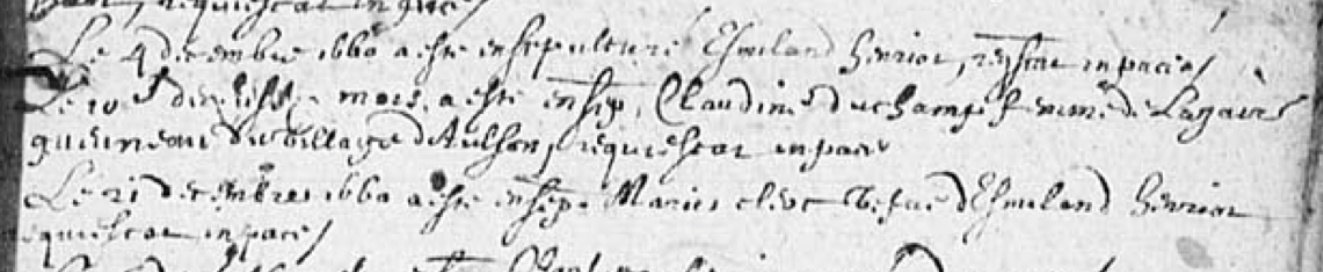 requiescat in pace
Le 4 decembre 1660 a este ensepulturé Esmiland henriot, reqscat in pace
Le 10e dudit mois a este ensep. Claudine duchamp femme de Lazare
gueuneau du village d'Aulson, requiescat in pace
Le 21 decembre 1660 a este ensep. Marie clerc vefue d'Esmiland henriot
requiescat in pace